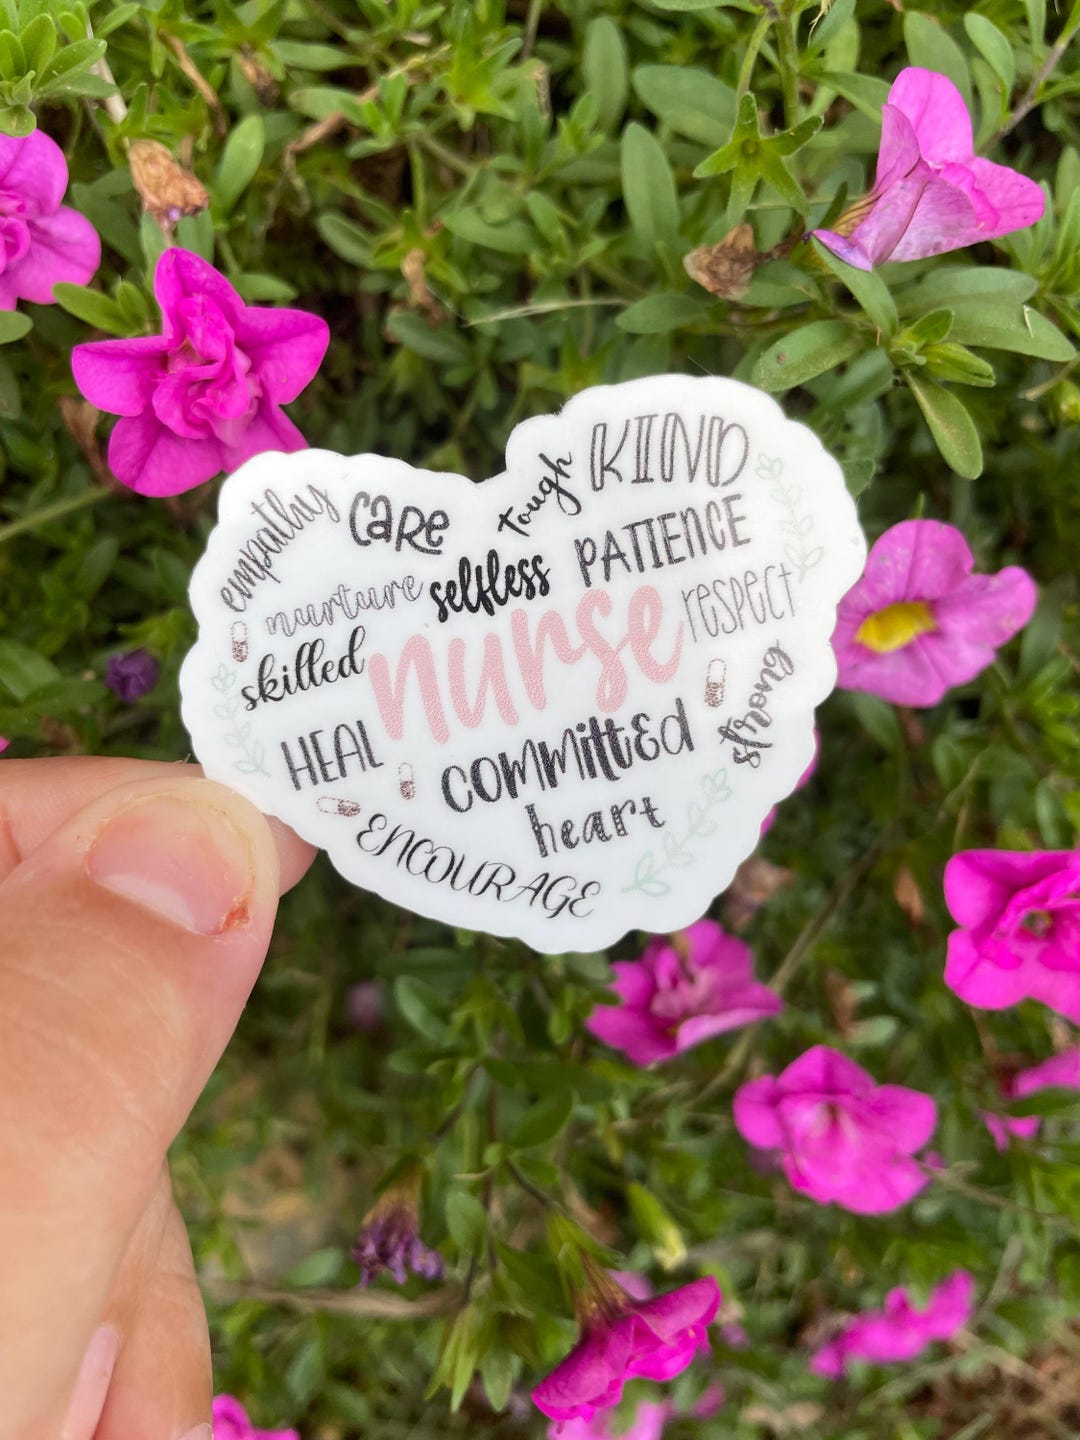 empathy
CaRe
tough
KIND
nurture
selfless
PATIENCE
skilled
nurse
respect
HEAL
committed
strong
heart
ENCOURAGE